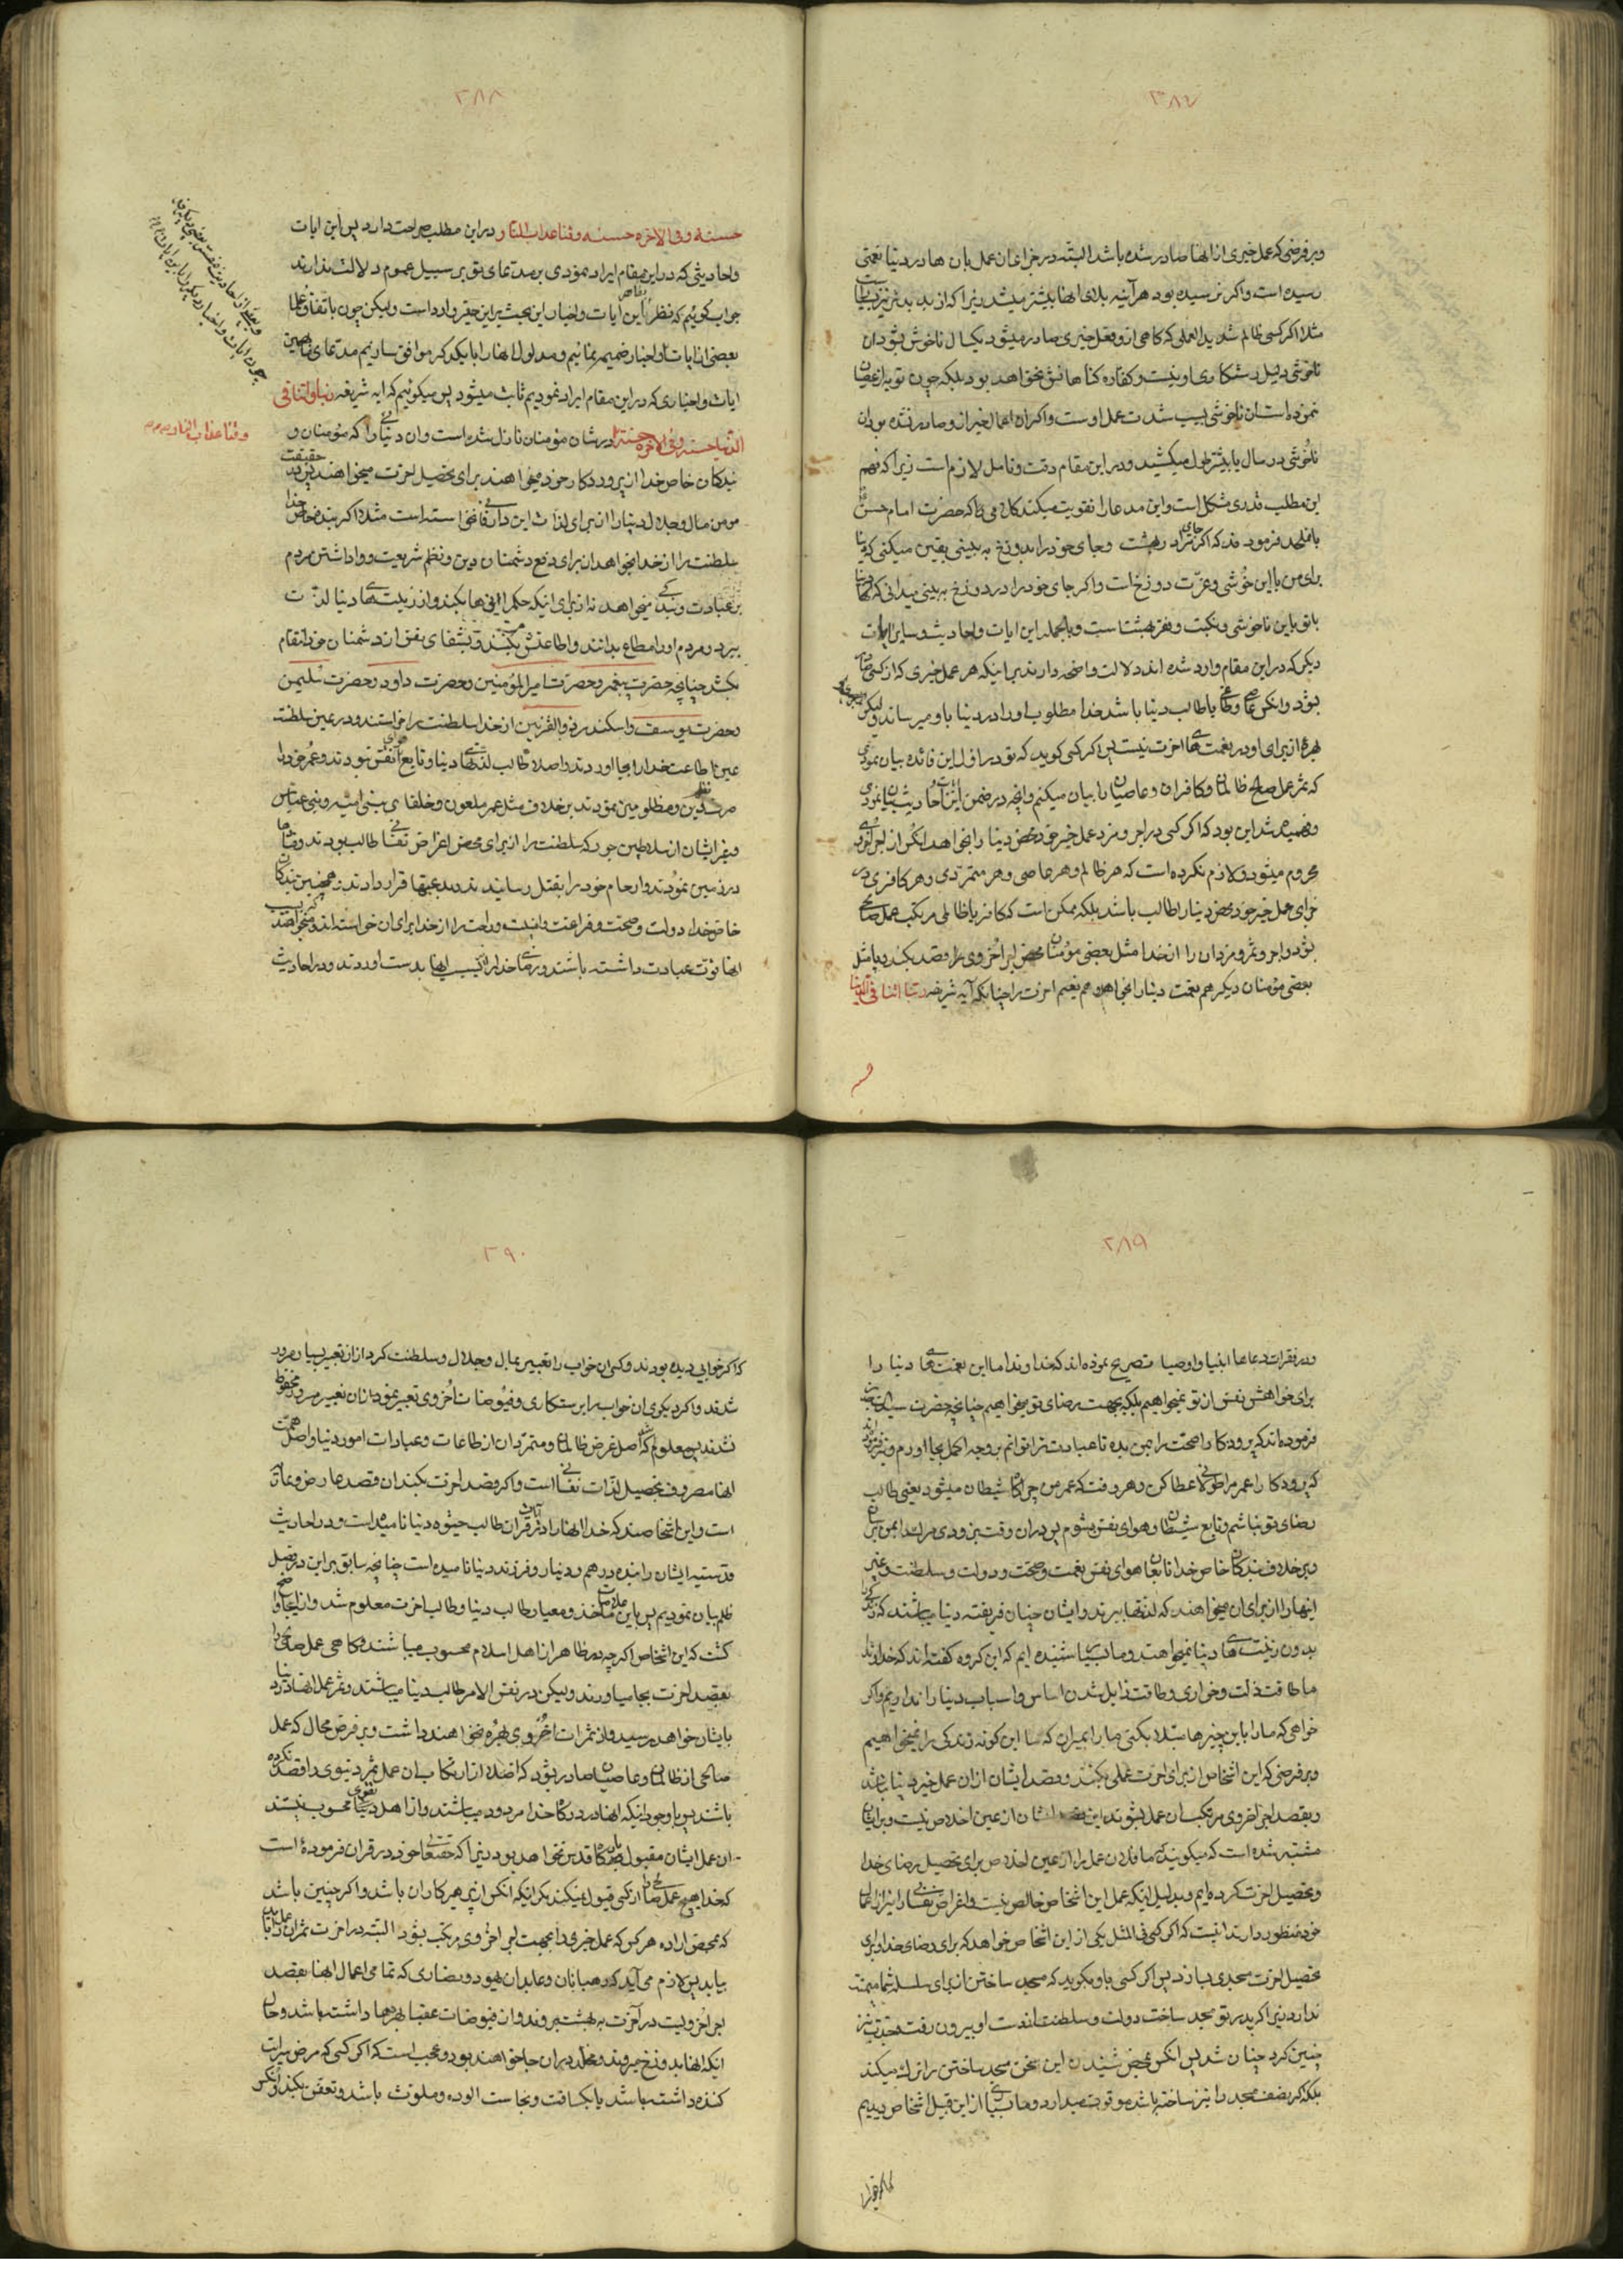 ۳۸۷
و بر فرضی که عمل خیری از انها صادر شده باشد البته در جزای ان عمل بان ها در دنیا نعمتی
رسیده است و اکر نرسیده بود هر آینه بلای انها بیشتر میشد زیرا که از بد بد تر نیز
مثلا اکر کسی ظالم شدید العملی که کاهی ازو فعل خیری صادر میشود یکسال ناخوش شود ان
ناخوشی دلیل رستکاری او نیست و کفاره کناهانش نخواهد بود بلکه چون توبه از عصیان
ننموده است ان ناخوشی بسبب شدت عمل اوست و اکر ان اعمال خیر ازو صادر نشده بود ان
ناخوشی دو سال یا بیشتر طول میکشید و در این مقام دقت و تامل لازم است زیرا که فهم
این مطلب قدری مشکل است و این مدعا را تقویت میکند کلامی که حضرت امام حسن
بملحد فرمودند که اکر جای مرا در بهشت و جای خود را در دوزخ به بینی یقین میکنی که دنیا
برای من با این خوشی و عزت دوزخ است و اکر جای خود را در دوزخ به بینی میدانی که دنیا
با تو با این ناخوشی و نکبت و فقر بهشت است و بالجمله این ایات و احادیث و سایر ایات
دیکر که در این مقام وارد شده اند دلالت واضحه دارند بر اینکه هر عمل خیری که از کسی صادر
شود و انکس عاصی و طاغی یا طالب دنیا باشد خدا مطلوب او را در دنیا باو میرساند و لیکن
بهره از برای او در نعمت های اخرت نیست پس اکر کسی کوید که تو در اول این فائده بیان نمودی
که ثمر عمل صالح ظالمان و کافران و عاصیان را بیان میکنم و انچه در ضمن این احادیث بیان نمودی
و فهمیده شد این بود که اکر کسی در اجر و مزد عمل خیر خود محض دنیا را بخواهد انکس از اجر اخروی
محروم میشود و لازم نکرده است که هر ظالم و هر عاصی و هر متمردی و هر کافری در
جزای عمل خیر خود محض دنیا را طالب باشد بلکه ممکن است که کافر یا ظالمی مرتکب عمل صالحی
شود و اجر و ثمر و مزد ان را از خدا مثل بعضی مؤمنان محض اجر اخروی را قصد بکند و یا مثل
بعضی مؤمنان دیکر هم نعمت دنیا را بخواهد و هم نعیم اخرت را چنانکه آیه شریفه ربنا اتنا فی الدنیا
۳۸۸
حسنه و فی الاخره حسنه و قنا عذاب النار و در این مطلب صراحت دارد پس این ایات
و احادیثی که در این مقام ایراد نمودی بر مدعای تو بر سبیل عموم دلالت ندارند
جواب کوئیم که نظر بظاهر این ایات و اخبار این بحث بر این حقیر وارد است و لیکن چون باتفاق علما
بعضی از ایات و اخبار ضمیمه نمائیم و مدلول انها را با یکدیکر موافق سازیم مدعای ما بهمین
ایات و اخباری که در این مقام ایراد نمودیم ثابت میشود پس میکوئیم که ایه شریفه ربنا و اتنا فی
الدنیا حسنه و فی الاخره حسنه در شان مؤمنان نازل شده است و ان دنیائی را که مؤمنان و
و قنا عذاب النار
بندکان خاص خدا از پروردکار خود میخواهند برای تحصیل اخرت میخواهند پس در حقیقت
مومن مال و جلال دنیا را از برای لذات این دار فانی نخواسته است مثلا اکر بنده خاص خدا
سلطنت را از خدا بخواهد از برای دفع دشمنان دین و نظم شریعت و واداشتن مردم
بر عبادت و بندکی میخواهد نه از برای اینکه حکمرانی ها بکند و از زینت های دنیا لذت
ببرد و مردم او را مطاع بدانند و اطاعتش بکنند و تشفای نفس از دشمنان خود انتقام
بکشد چنانچه حضرت پیغمبر و حضرت امیرالمؤمنین و حضرت داود و حضرت سلیمن
و حضرت یوسف و اسکندر ذوالقرنین از خدا سلطنت را خواستند و در عین سلطنت
عین اطاعت خدا را بجا اوردند و اصلا طالب لذتهای دنیا و تابع هوای نفس نبودند و عمر خود را
صرف دین و نظم مظلومین نمودند بر خلاف مثل عمر ملعون و خلفای بنی امیه و بنی عباس
و غیر ایشان از سلاطین جور که سلطنت را از برای محض اغراض نفسانی طالب بودند و فسادها
در زمین نمودند و ارحام خود را بقتل رسانیدند و بدعتها قرار دادند و همچنین بندکان
خاص خدا دولت و صحت و فراغت و امنیت و راحت را از خدا برای ان خواسته اند و میخواهند که بسبب
انها قوت عبادت داشته باشند و رضای خدا را بسبب انها بدست اوردند و در احادیث
۳۸۹
و در فقرات دعاها انبیا و اوصیا تصریح نموده اند که خداوندا ما این نعمت های دنیا را
برای خواهش نفس از تو نمیخواهیم بلکه بجهت رضای تو میخواهیم چنانچه حضرت سید الساجدین
فرموده اند که پروردکارا صحت را بمن بده تا عبادت ترا توانم بر وجه اکمل بجا اورم و نیز فرموده اند
که پروردکارا عمر مرا طولانی عطا کن و هر وقت که عمر من چراکاه شیطان میشود یعنی طالب
رضای تو نباشم و تابع شیطان و هوای نفس بشوم پس در ان وقت بزودی مرا بمیران
و بر خلاف بندکان خاص خدا تابعان هوای نفس نعمت و صحت و دولت و سلطنت و غیر
اینها را از برای ان میخواهند که لذتها ببرند و ایشان چنان فریفته دنیا میباشند که زندکی را
بدون زینت های دنیا نمیخواهند و ما بسیار شنیده ایم که این کروه کفته اند که خداوندا
ما طاقت ذلت و خواری و طاقت زایل شدن اساس و اسباب دنیا را نداریم و اکر
خواهی که ما را باین چیزها مبتلا بکنی ما را بمیران که ما این کونه زندکی را نمیخواهیم
و بر فرضی که این اشخاص از برای اخرت عملی بکنند و قصد ایشان از ان عمل خیر دنیا نباشد
و بقصد اجر اخروی مرتکب ان عمل بشوند این قصد ایشان از عین اخلاص نیست و بر ایشان
مشتبه شده است که میکویند که ما فلان عمل را از عین اخلاص برای تحصیل رضای خدا
و تحصیل اخرت کرده ایم و بدلیل اینکه عمل این اشخاص خالص نیست و اغراض نفسانی را نیز از اعمال
خود منظور دارند انیست که اکر کسی فی المثل یکی از این اشخاص خواهد که برای رضای خدا و برای
تحصیل اخرت مسجدی بسازد پس اکر کسی باو بکوید که مسجد ساختن از برای سلسله شما میمنت
ندارد زیرا که پدر تو مسجد ساخت دولت و سلطنت از دست او بیرون رفت و جد تو نیز
چنین کرد چنان شد پس انکس بمحض شنیدن این سخن مسجد ساختن را ترک میکند
بلکه اکر نصف مسجد را نیز ساخته باشد موقوف میدارد و ما بسیاری از این قبیل اشخاص دیدیم
۳۹۰
که اکر خوابی دیده بودند و کسی ان خواب را تعبیر بمال و جلال و سلطنت کرد از ان تعبیر بسیار مسرور
شدند و اکر دیکری ان خواب را برستکاری و فیوضات اخروی تعبیر نمود از ان تعبیر مسرور و محظوظ
نشدند پس معلوم شد که اصل غرض ظالمان و متمردان از طاعات و عبادات امور دنیا و اصل همت
انها مصروف تحصیل لذات نفسانی است و اکر قصد اخرت بکنند ان قصد عارضی و
است و این اشخاصند که خدا انها را در آیات قران طالب حیوه دنیا نامیده است و در احادیث
قدسیه ایشان را بنده درهم و دینار و فرزند دنیا نامیده است چنانچه سابق بر این در فصل
ظلم بیان نمودیم پس باین علامات ماخذ و معیار طالب دنیا و طالب اخرت معلوم شد و از اینجا واضح
کشت که این اشخاص اکر چه در ظاهر از اهل اسلام محسوب میباشند و کاهی عمل صالحی را
بقصد اخرت بجا میاورند و لیکن در نفس الامر طالب دنیا میباشند و ثمر عمل انها در دنیا
بایشان خواهد رسید و از ثمرات اخروی بهره نخواهند داشت و بر فرض محال که عمل
صالحی از ظالمان و عاصیان صادر شود که اصلا از ارتکاب ان عمل ثمر دنیوی را قصد نکرده
باشند پس با وجود اینکه انها در درکاه خدا مردود میباشند و از اهل تقوی محسوب نیستند
ان عمل ایشان مقبول بارکاه قدس نخواهد بود زیرا که حقتعالی خود در قران فرموده است
که خدا هیچ عمل صالحی را از کسی قبول نمیکند مکر انکه انکس از پرهیزکاران باشد و اکر چنین باشد
که محض اراده هر کس که عمل خیر خود را بجهت اجر اخروی مرتکب شود البته در اخرت ثمر ان عمل را
بیابد پس لازم می آید که رهبانان و عابدان یهود و نصاری که تمامی اعمال انها بقصد
اجر اخرویست در آخرت به بهشت بروند و از فیوضات عقبا بهره ها داشته باشند و حال
انکه انها بدوزخ میروند و مخلد در ان جا خواهند بود و عجب است که اکر کسی که مرض سرایت
کننده داشته باشد یا بکسافت و نجاست الوده و ملوث باشد و تعفن بکند و انکس